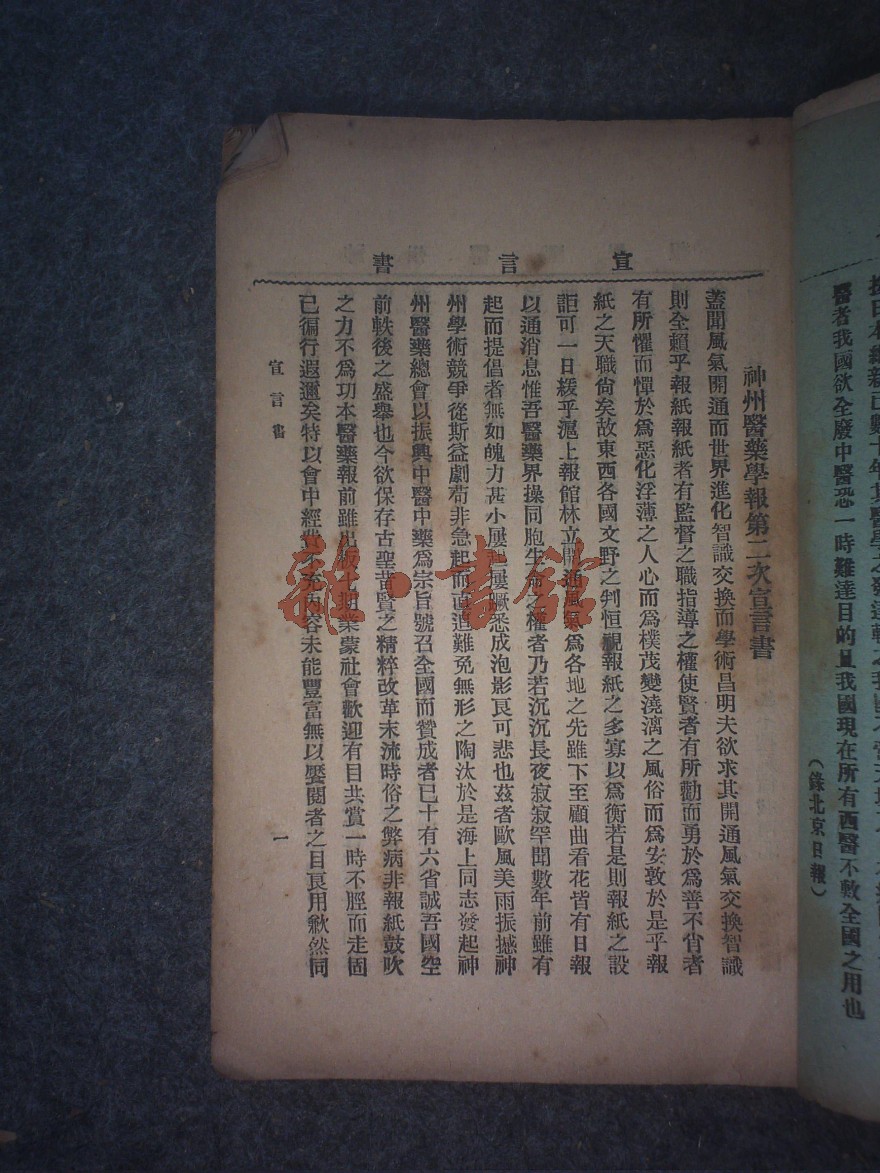 醫者我國欲全廢中醫恐一時難達目的且我國現在所有西醫不敷全國之用也
（錄北京日報）
宣言書
神州醫藥學報第二次宣言書
蓋聞風氣開通而世界進化智識交換而學術昌明夫欲求其開通風氣交換智識
則全賴乎報紙報紙者有監督之職指導之權使賢者有所勸而勇於爲善不肖者
有所懼而憚於爲惡化浮薄之人心而爲樸茂變澆漓之風俗而爲安敦於是乎報
紙之天職尙矣故東西各國文野之判恒視報紙之多寡以爲衡若是則報紙之設
詎可一日緩乎滬上報館林立開通風氣爲各地之先雖下至顧曲看花皆有日報
以通消息惟吾醫藥界操同胞生命之權者乃若沉沉長夜寂寂罕聞數年前雖有
起而提倡者無如魄力甚小屢起屢蹶悉成泡影良可悲也茲者歐風美雨振撼神
州學術競爭從斯益劇苟非急起而直追難免無形之陶汰於是海上同志發起神
州醫藥總會以振興中醫中藥爲宗旨號召全國而贊成者已十有六省誠吾國空
前軼後之盛舉也今欲保存古聖昔賢之精粹改革末流時俗之弊病非報紙鼓吹
之力不爲功本醫藥報前雖出版七期業蒙社會歡迎有目共賞一時不脛而走固
已徧行遐邇矣特以會中經費不充內容未能豐富無以饜閱者之目良用歉然同
宣言書
一
雜·書館